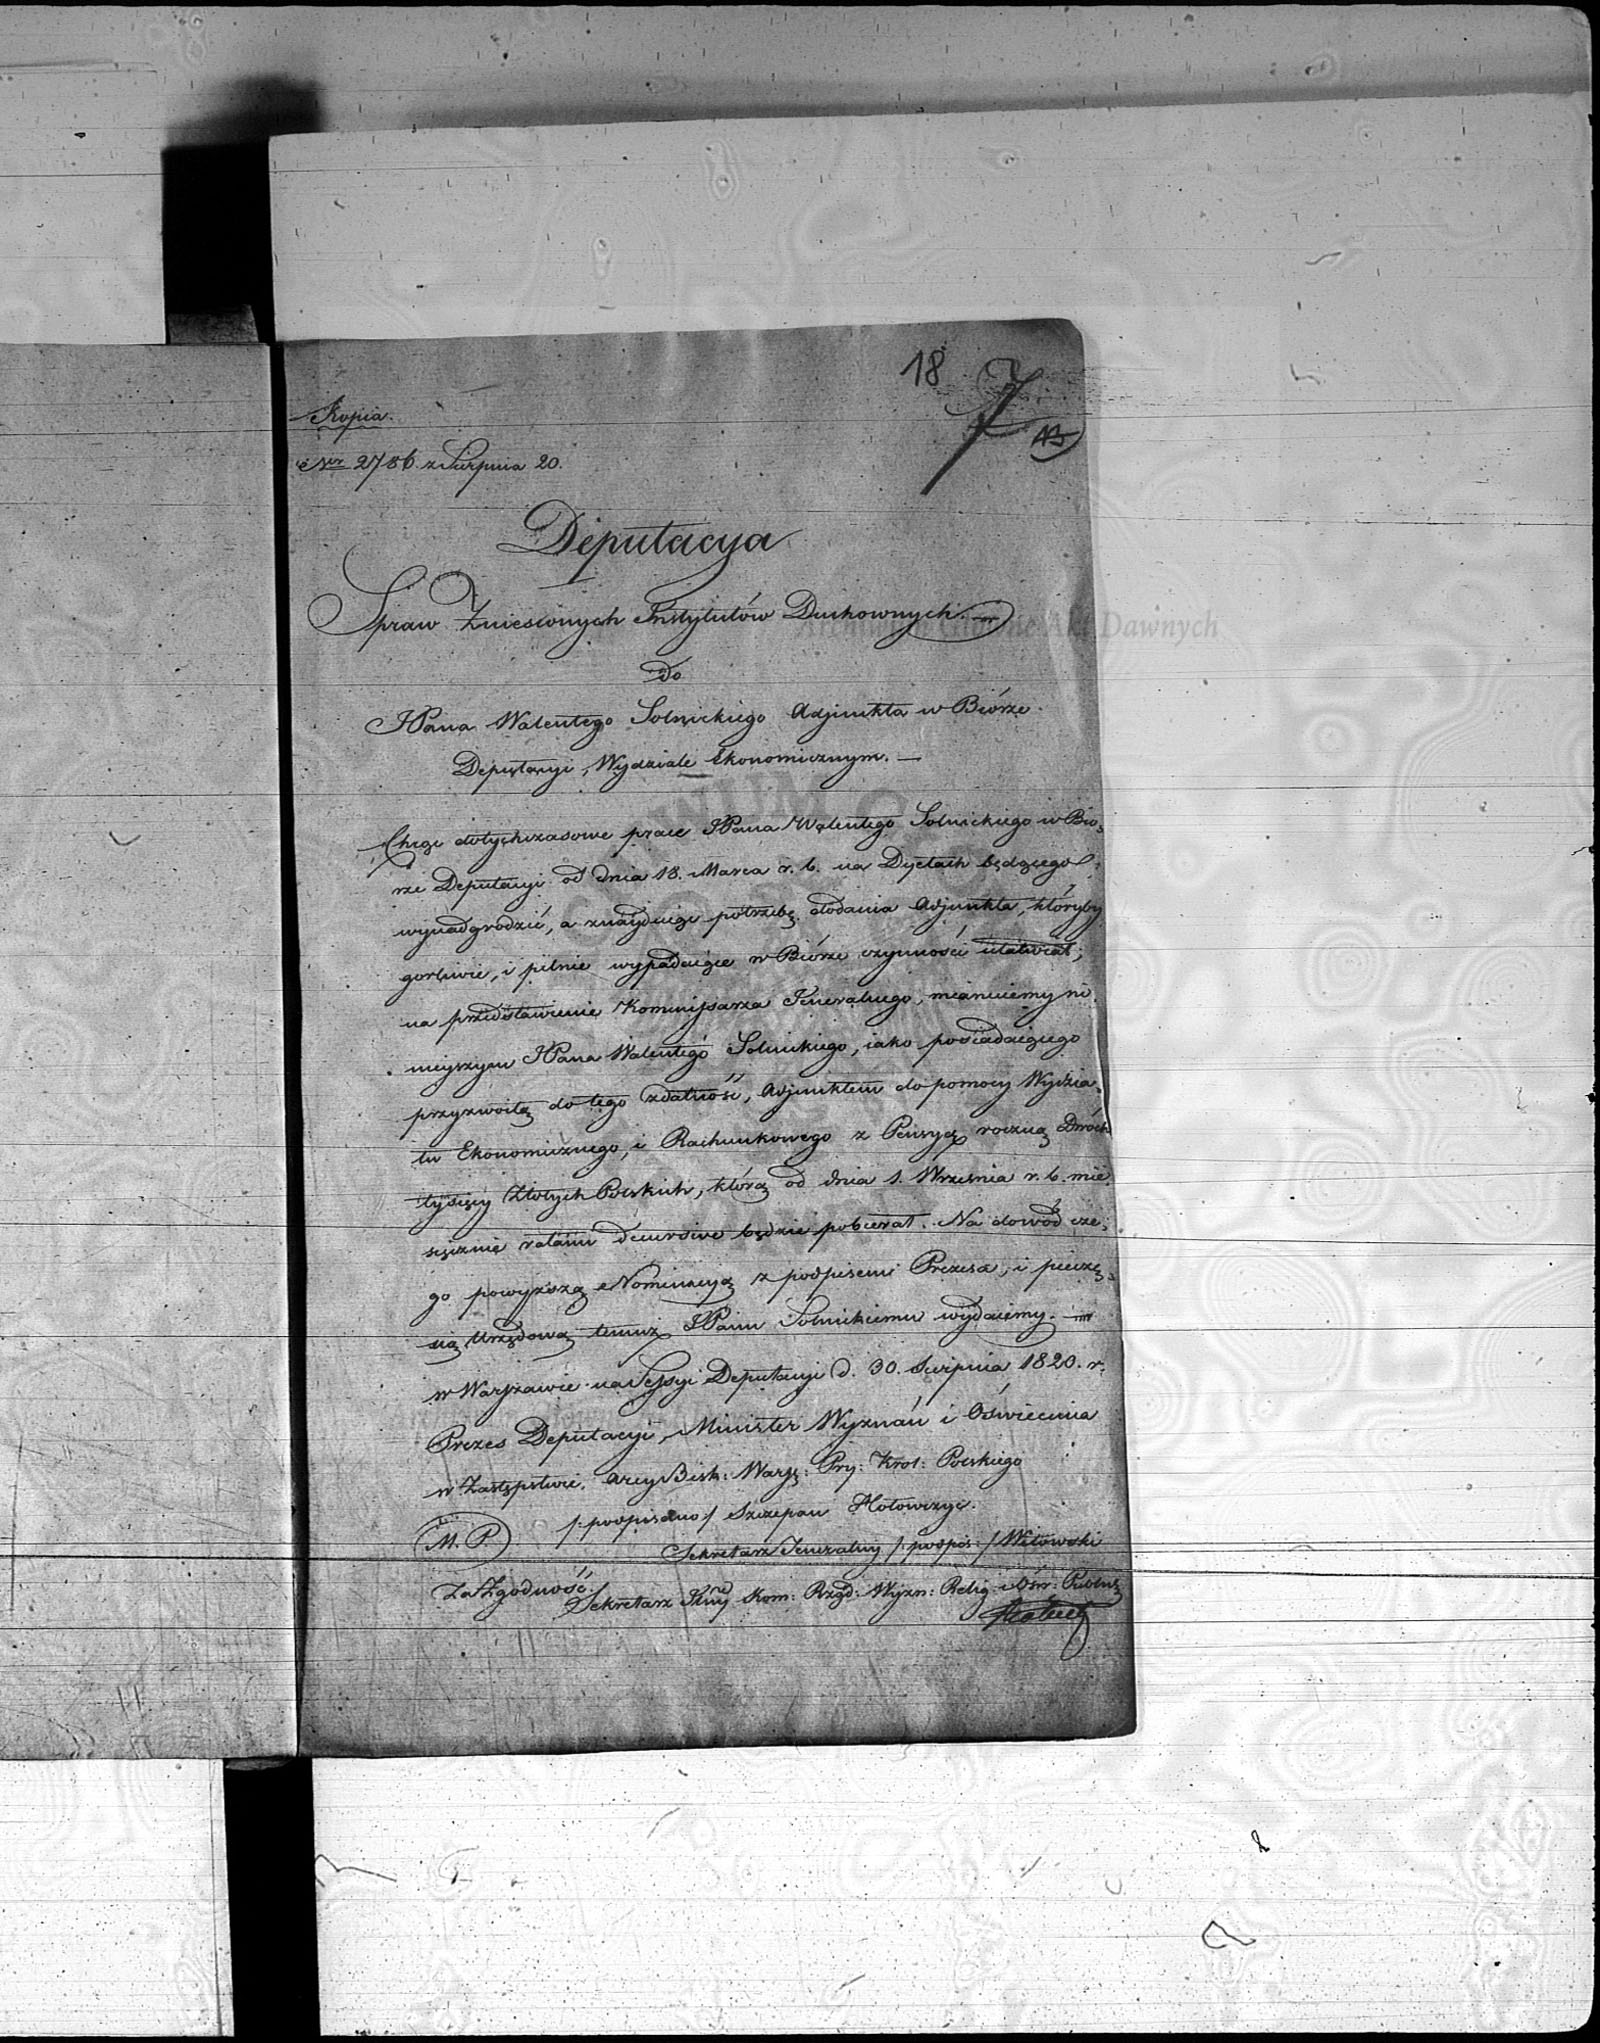 18
7
Kopia.
Nor 2786 z Sierpnia 20.
Deputacya
Spraw Zniesionych Instytutów Duchownych.
Archiwum Główne Akt Dawnych
do
JPana Walentego Solnickiego Adjunkta w Biórze
Deputacyi, Wydziale Ekonomicznym. —
Chcąc dotychczasowe prace JPana Walentego Solnickiego w Bio,
rze Deputacyi od dnia 18. Marca r. b. na Dyetach będącego
wynadgrodzić, a znayduiąc potrzebę dodania Adjunkta, któryby
gorliwie, i pilnie wypadaiące w Biórze czynności ułatwiał;
na przedstawienie Kommissarza Jeneralnego, mianuiemy ni
nieyszym JPana Walentego Solnickiego, iako posiadaiącego
przyzwoitą do tego zdatność, Adjunktem do pomocy Wydzia,
łu Ekonomicznego, i Rachunkowego z Pensyą roczną Dwóch
tysięcy Złotych Polskich, którą od dnia 1. Września r. b. mie
sięcznie ratami decursive będzie pobierał. Na dowód cze,
go powyższą Nominacyą z podpisem Prezesa, i pieczę,
cią Urzędową temuż JPanu Solnickiemu wydaiemy.
w Warszawie na Sessyi Deputacyi d. 30. Sierpnia 1820. r.
Prezes Deputacyi, Minister Wyznań i Oświecenia
w Zastępstwie. Arcy Bisk: Warsz: Pry: Król: Polskiego
/: podpisano / Szczepan Hołowczyc.
M. P.
Sekretarz Jeneralny /: podpis: / Witowski
Za Zgodność.
Sekretarz Jlny Kom: Rząd: Wyzn: Relig: i Ośw: Publicz